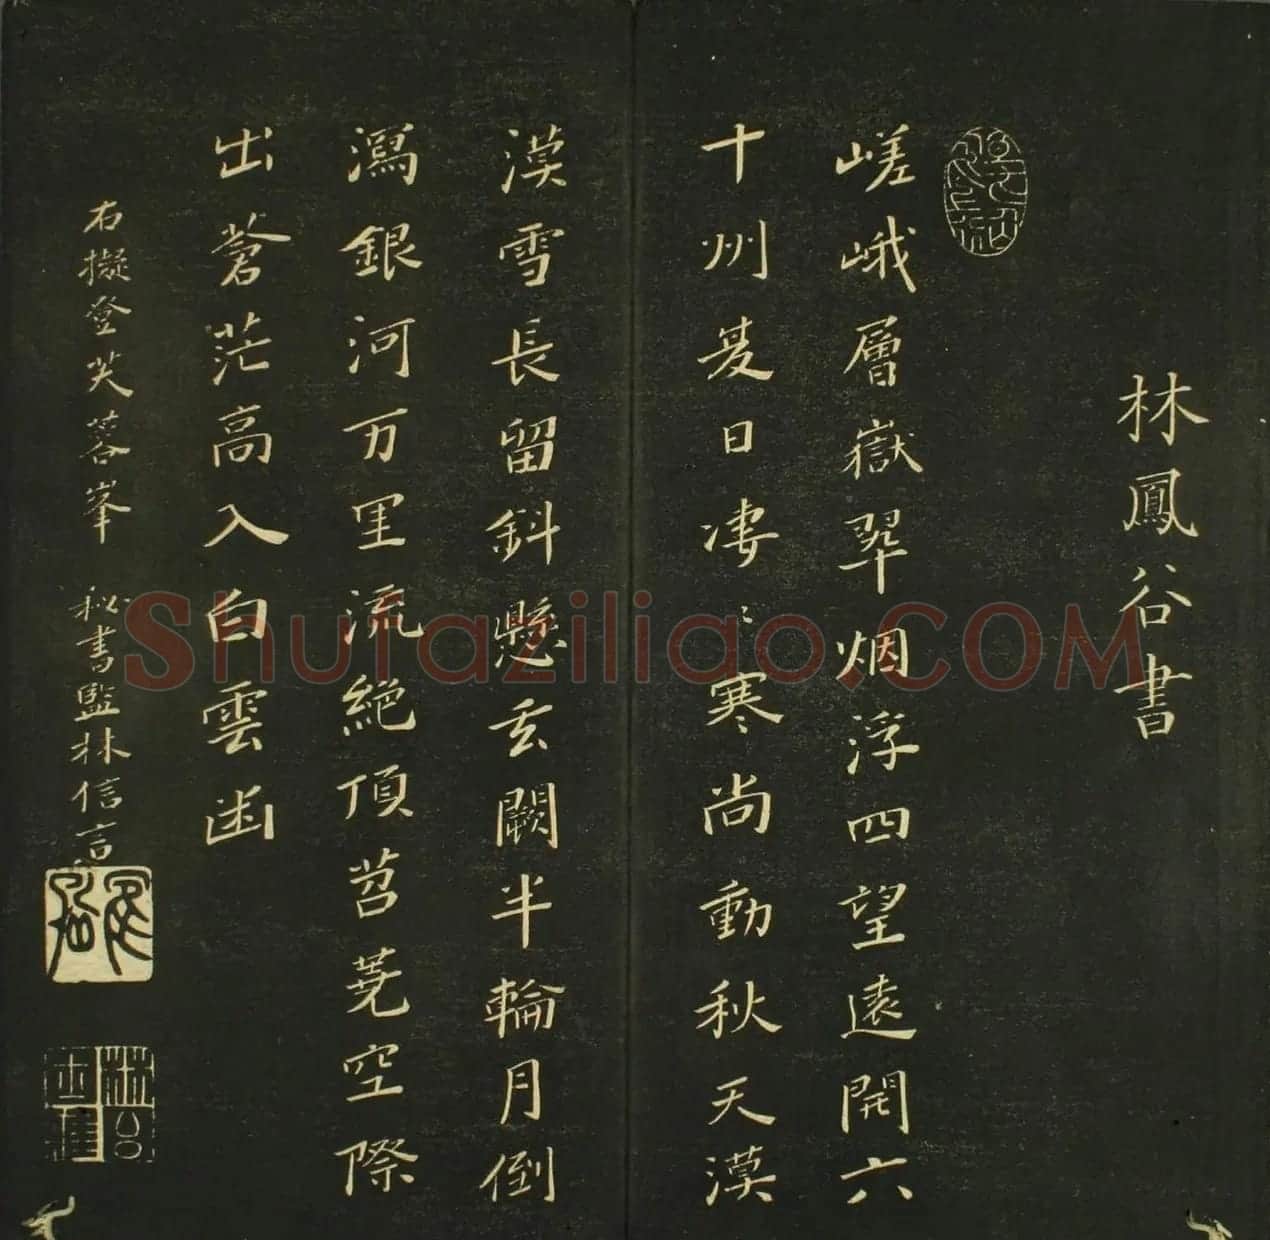 林鳳谷書
嵯峨層嶽翠烟浮四望遠開六
十州夏日凄〻寒尚動秋天漠
漠雪長留斜懸玄闕半輪月倒
瀉銀河万里流絶頂苕蕘空際
出蒼茫高入白雲幽
右擬登芙蓉峯 秘書監林信言
Shufaziliao.COM